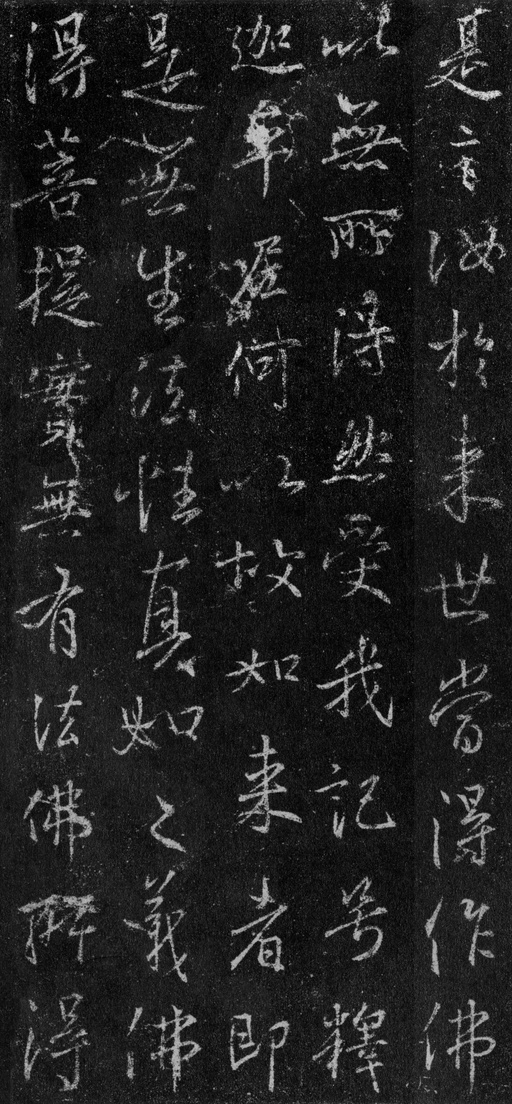 是言汝於来世當得作佛
以無所得然受我記号釋
迦牟尼何以故如来者即
是無生法性真如之義佛
得菩提實無有法佛所得